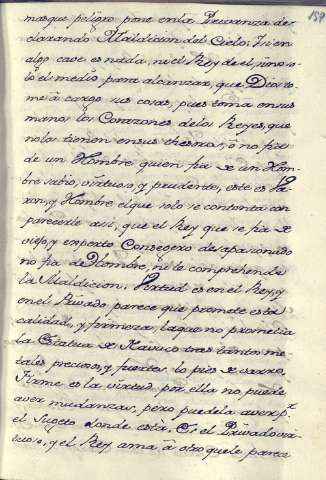 mas que peligro pone en la Privanza de
clarando Maldicion del Cielo: Si en
algo cave es nada, ni el Rey de el, sino so
lo el medio para alcanzar, que Dios to
me â cargo sus cosas, pues toma en sus
manos los Corazones de los Reyes, que
no los tienen en sus thesoros, ô no fia
de un Hombre quien fia de un Hom
bre sabio, virtuoso, y prudente, este es Va
ron, y Hombre el que solo se contenta con
parecerlo asi, que el Rey que se fia de
viejo, y experto Consegero desapasionado
no fia de Hombre, ni le comprehende
la Maldicion. Virtud es en el Rey, y
en el Privado parece que promete esta
calidad, y firmeza, la que no prometia
la Statua de Navuco tras tantos me
tales preciosos, y fuertes los pies de varro,
Firme es la virtud por ella no puede
aver mudanzas, pero puedela aver pr.
el Sugeto donde esta, Es el Privado vir
tuoso, y el Rey ama â otro que le parece